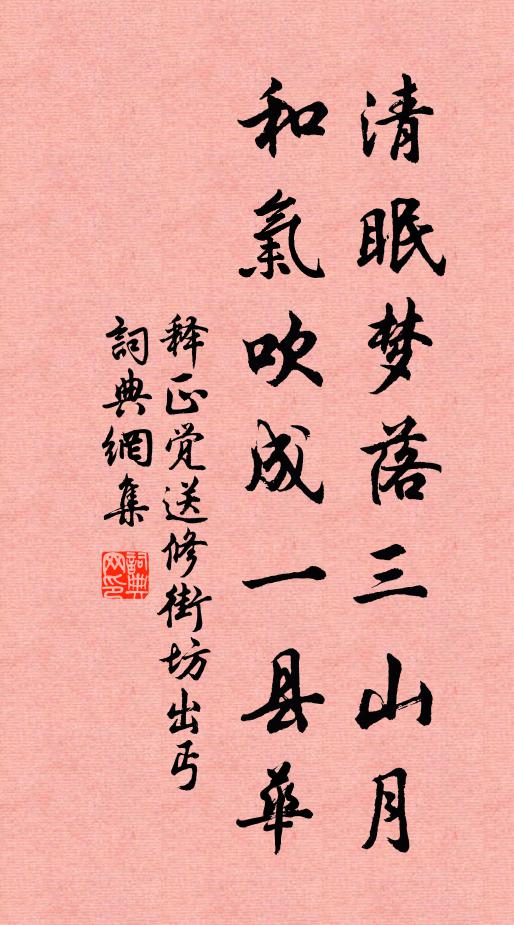 清眠梦落三山月
和氣吹成一县華
释正觉送修街坊出丐
詞典網集
詞典网印